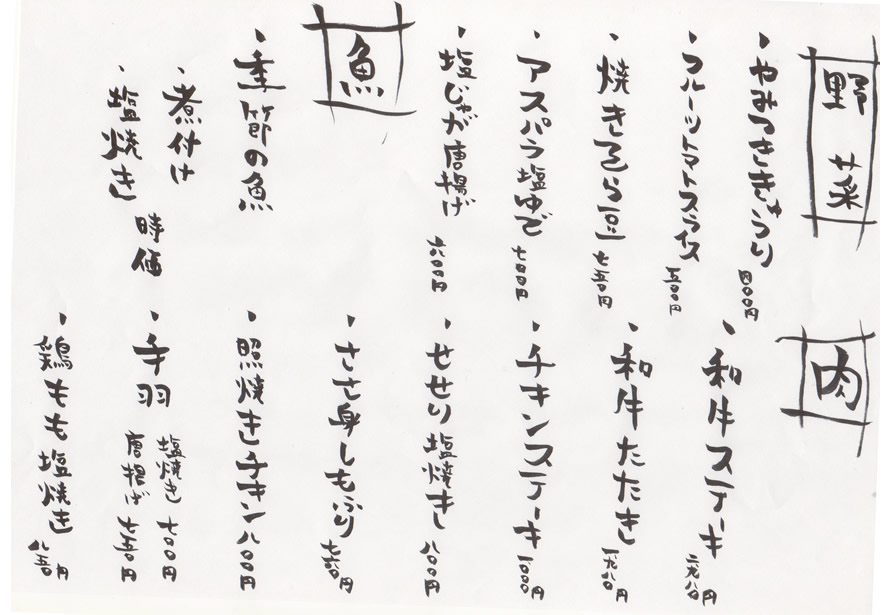 野菜
・やみつききゅうり 四〇〇円
・フルーツトマトスライス 五〇〇円
・焼きそら豆 七五〇円
・アスパラ塩ゆで 七〇〇円
・塩じゃが唐揚げ 六〇〇円
魚
・季節の魚
・煮付け
・塩焼き
時価
肉
・和牛ステーキ 二九八〇円
・和牛たたき 一九八〇円
・チキンステーキ 一〇〇〇円
・せせり塩焼き 八〇〇円
・ささ身しもふり 七五〇円
・照焼きチキン 八〇〇円
・手羽
塩焼き 七〇〇円
唐揚げ 七五〇円
・鶏もも塩焼き 八五〇円